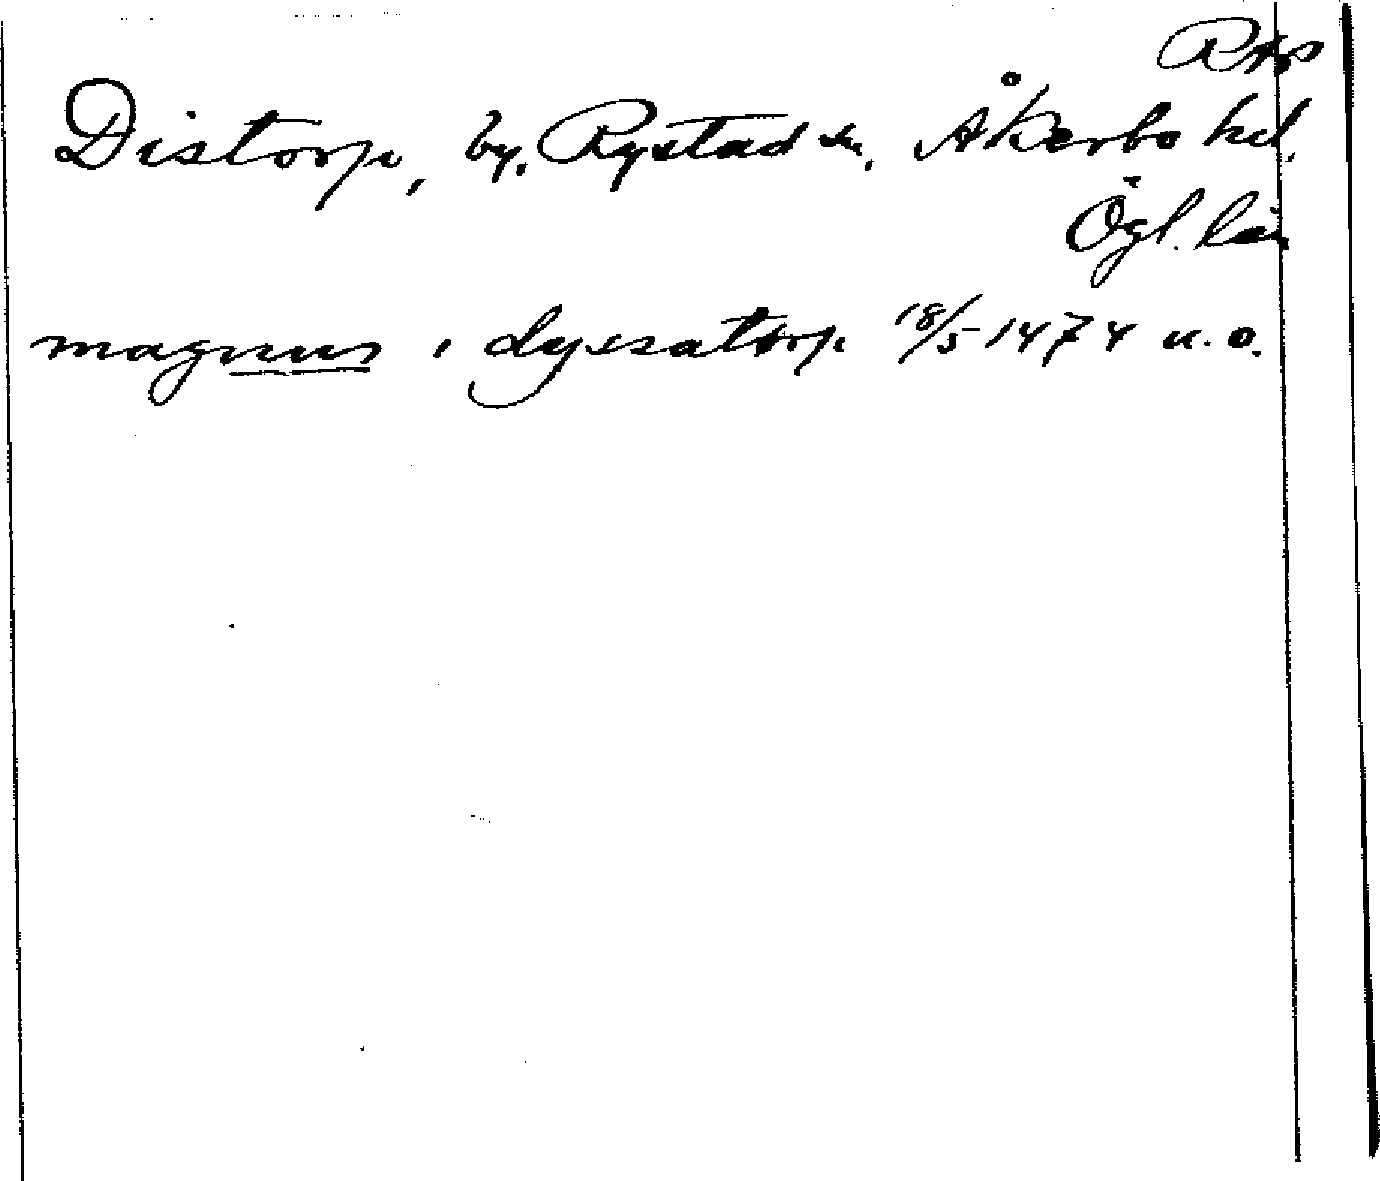 Rtp
Distorp, by, Rystad sn, Åkerbo hd.
Ögl. län
magnus i dyssatorp 18/5 1474 u. o.